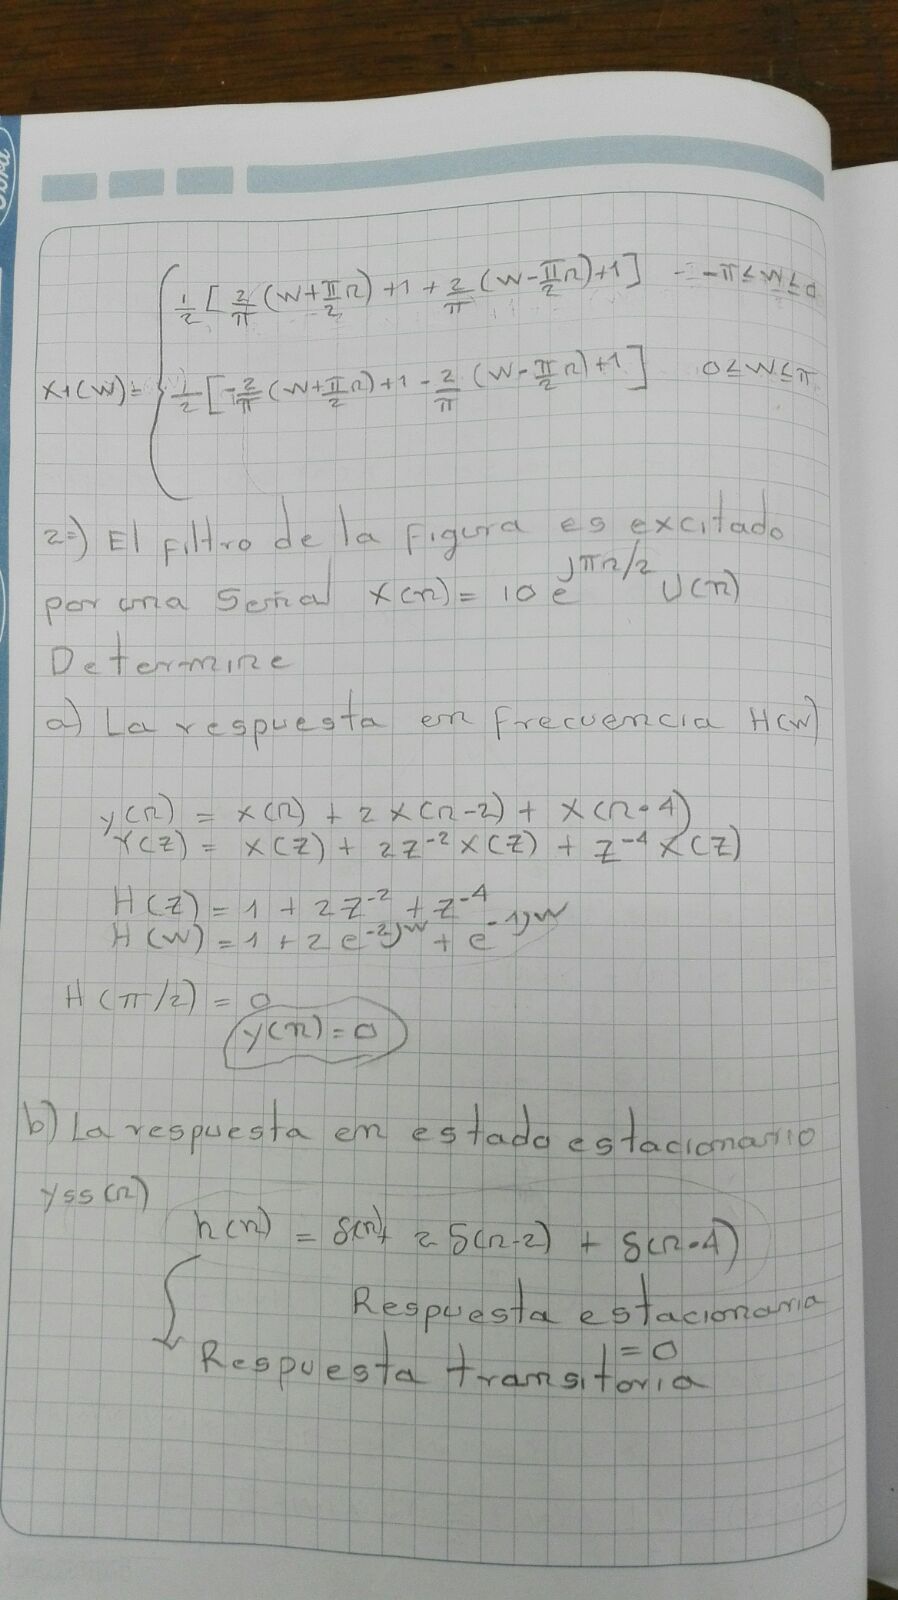 X1(w)= { 1/2 [ 2/π (w+π/2 n)+1 + 2/π (w-π/2 n)+1 ] -π≤w≤0
1/2 [ -2/π (w+π/2 n)+1 - 2/π (w-π/2 n)+1 ] 0≤w≤π
2=) El filtro de la figura es excitado
por una Señal x(n)= 10 e^jπn/2 U(n)
Determine
a) La respuesta en frecuencia H(w)
y(n) = x(n) + 2x(n-2) + x(n-4)
Y(z) = x(z) + 2z^-2 x(z) + z^-4 x(z)
H(z) = 1 + 2z^-2 + z^-4
H(w) = 1 + 2e^-2jw + e^-1jw
H(π/2) = 0
y(n) = 0
b) La respuesta en estado estacionario
yss(n)
h(n) = δ(n)+ 2δ(n-2) + δ(n-4)
Respuesta estacionaria
= 0
Respuesta transitoria